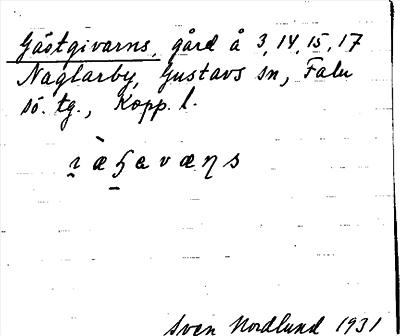 Gästgivarns, gård å 3, 14, 15, 17
Naglarby, Gustavs sn, Falu
sö. tg., Kopp. l.
Sven Nordlund 1931